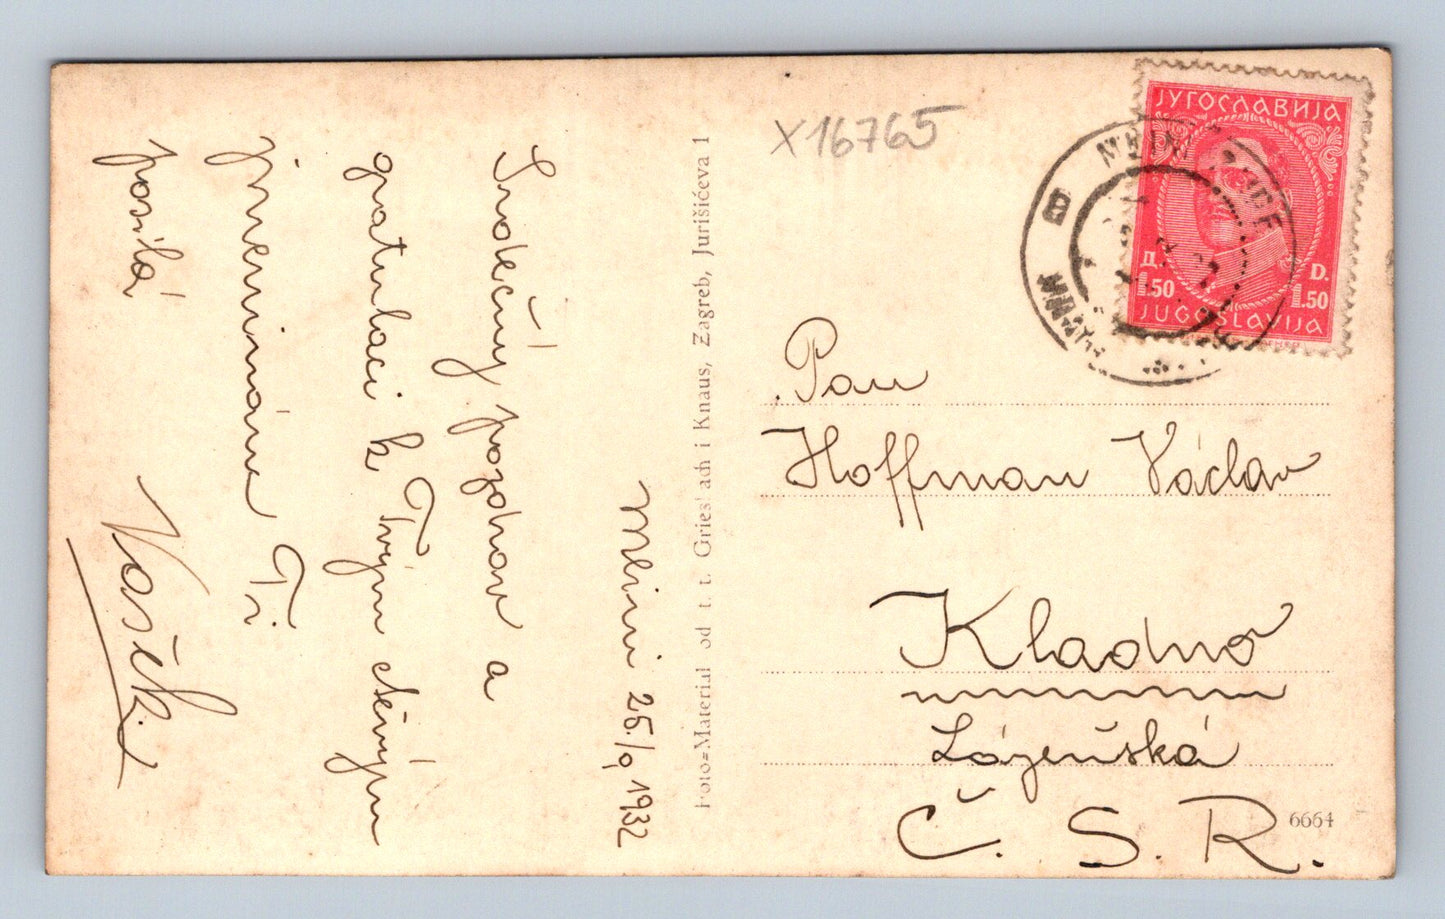 Mlini 26./9 1932
Srdečný pozdrav a
gratulaci k Tvým démým
jmeninám Ti
posílá
Vašek.
Foto=Material od t. t. Griesbach i Knaus, Zagreb, Jurišićeva 1
X16765
ЈУГОСЛАВИЈА
Д. D.
1.50 1.50
JUGOSLAVIJA
МЛИНИ
Pan
Hoffman Václav
Kladno
Lázeňská
Č. S. R.
6664